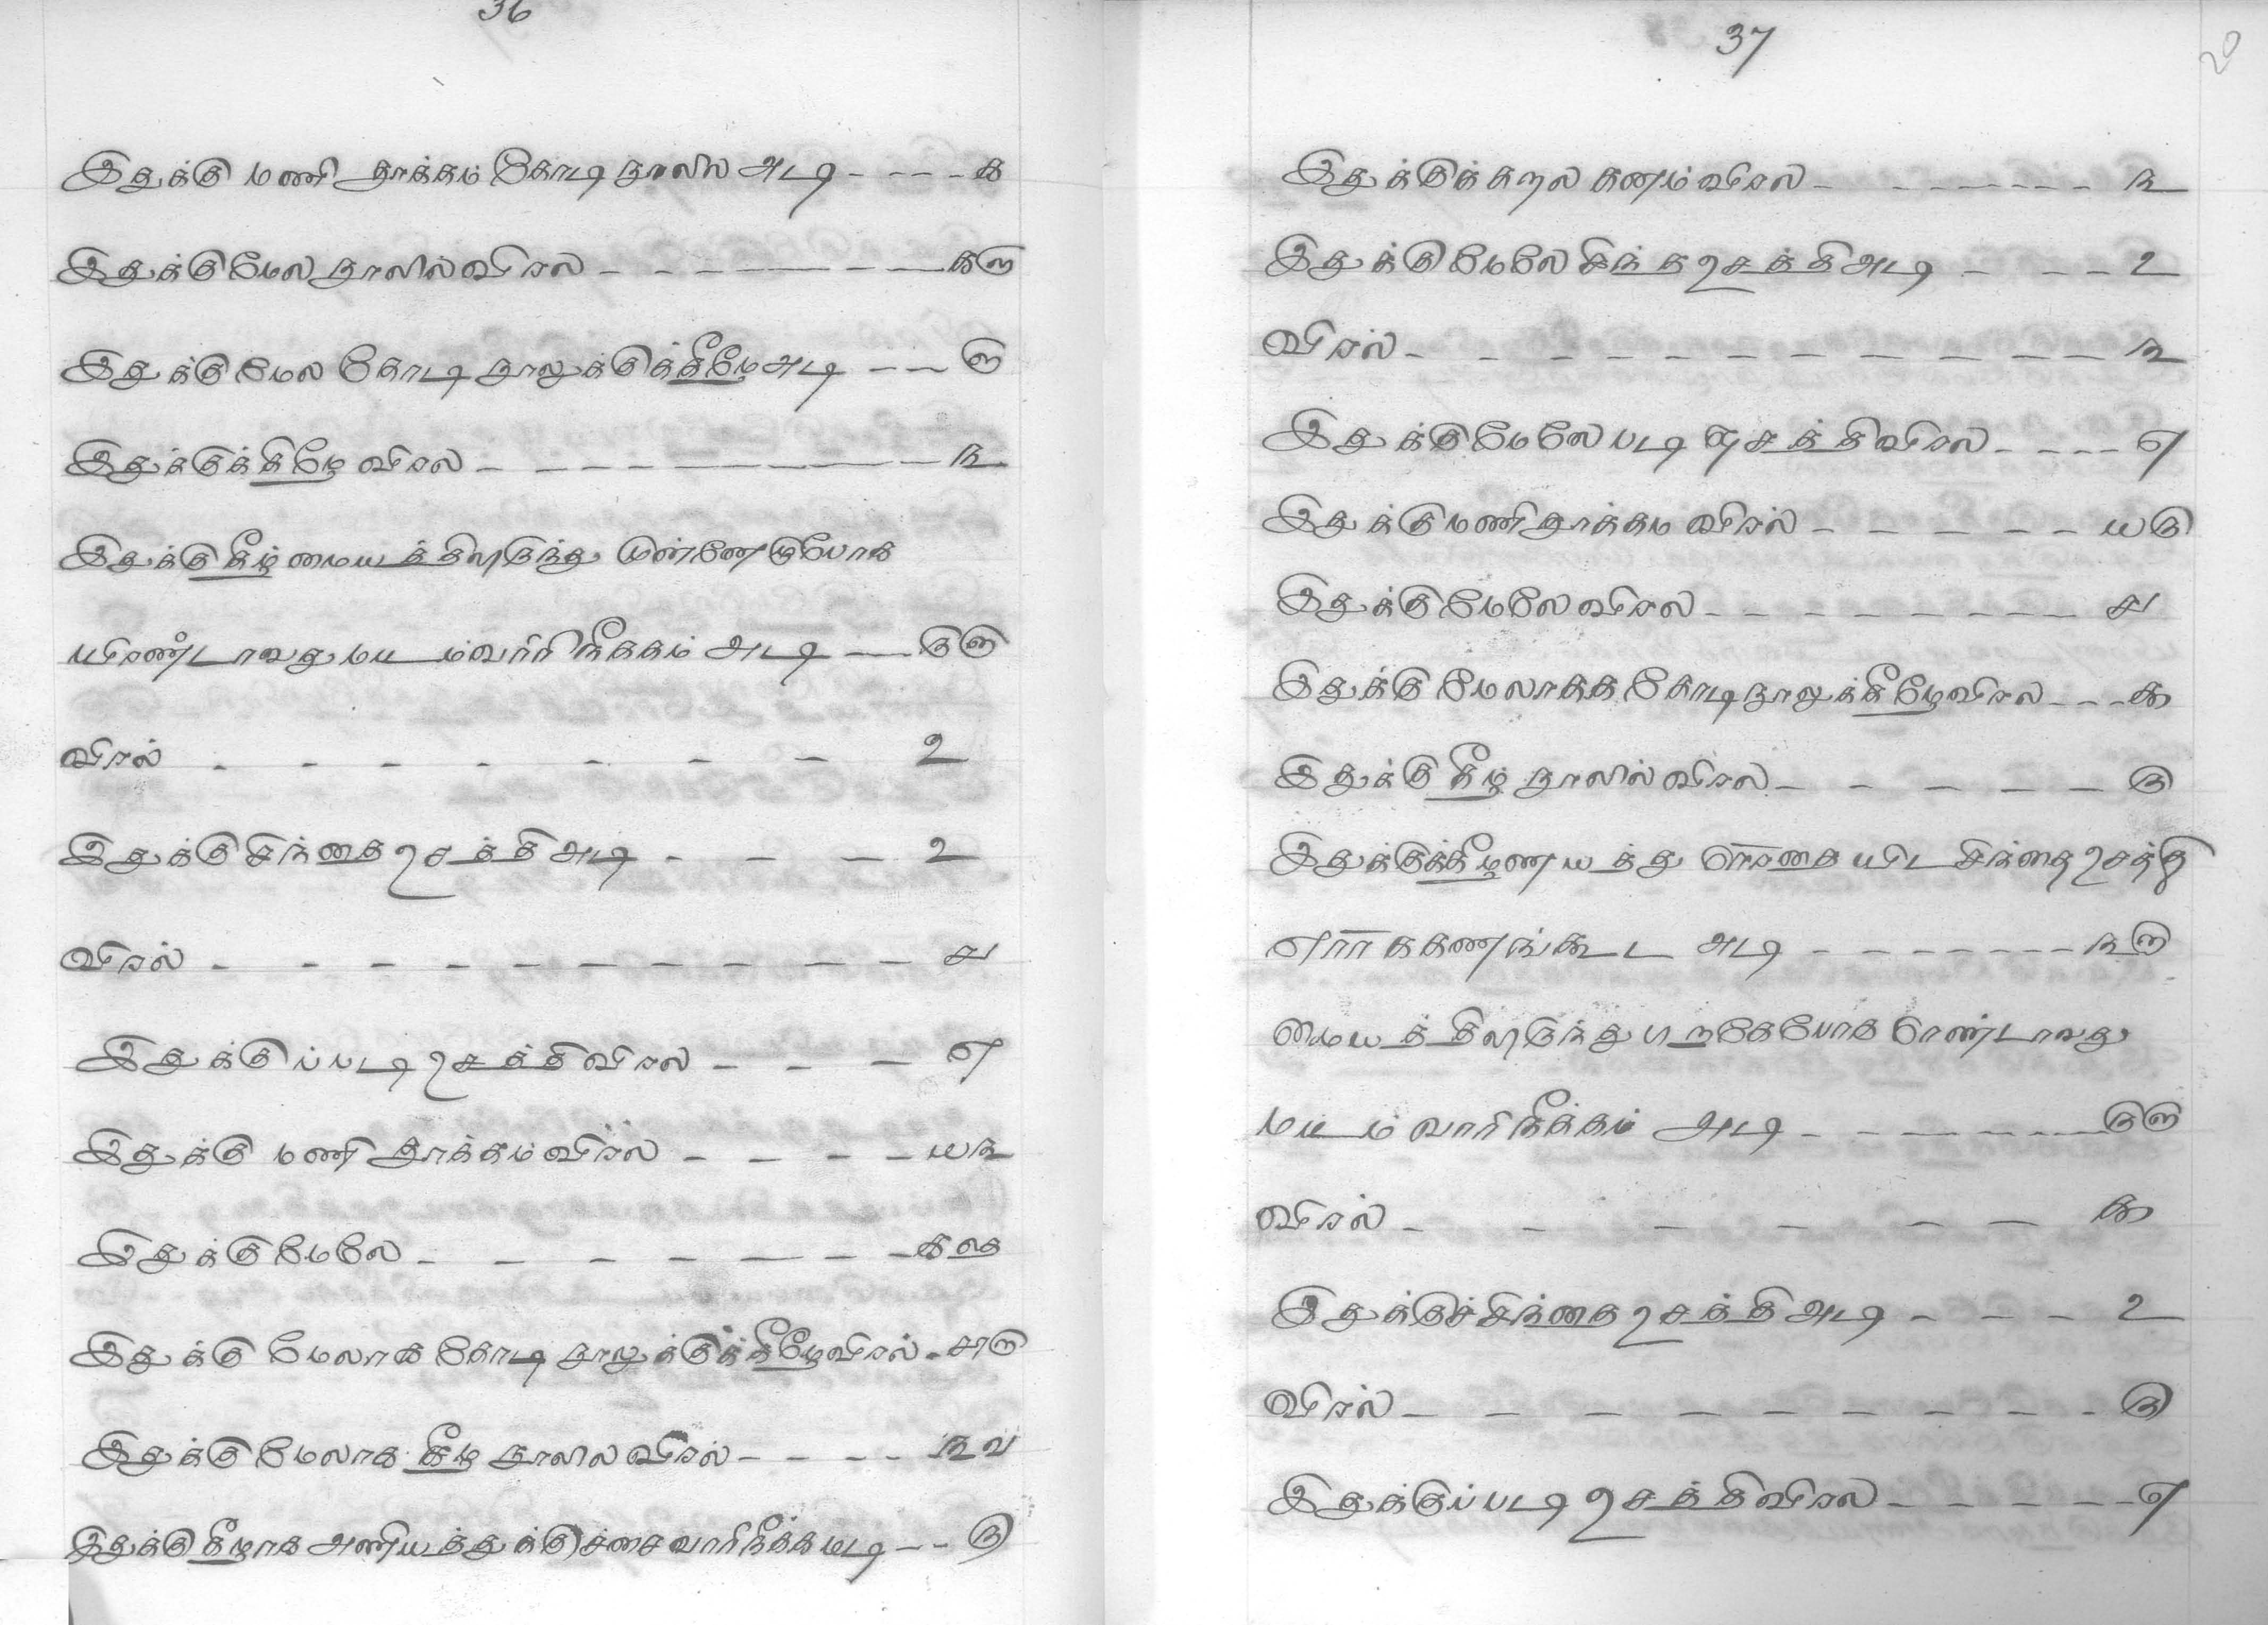 36
இதுக்கு மணி தூக்கம் கோடி நாலில அடி - - - - க
இதுக்கு மேல நாலில் விரல் - - - - - - - க௺
இதுக்கு மேல கோடி நாலுக்குக்கீழே அடி - - - ௺
இதுக்குக்கிழே விரல - - - - - - - - ௩
இதுக்கு கீழ் மையத்திலுருந்து முன்னேறுபோக
யிரண்டாவது மடம் வாரி நீக்கம் அடி - - ரு௺
விரல் - - - - - - - - ௨
இதுக்கு சிந்தை உசத்தி அடி - - - ௨
விரல் - - - - - - - - - - ௪
இதுக்குப்படி உசத்தி விரல - - - ௭
இதுக்கு மணி தூக்கம் விரல் - - - - ௰௩
இதுக்கு மேலே - - - - - - - க
இதுக்கு மேலாக கோடி நாலுக்குக்கீழே விரல் - ௪
இதுக்கு மேலாக கீழ நாலில விரல் - - - - ௩வ
இதுக்கு கீழாக அணியத்துக்கு ச்சை வாரிநீக்கமடி - - ௫
37
20
இதுக்குக்கறல கணம் விரல - - - - - - - - ௩
இதுக்கு மேலே சிந்த உசத்தி அடி - - - - ௨
விரல் - - - - - - - - - - - ௩
இதுக்கு மேலே படி உசத்தி விரல - - - - ௭
இதுக்கு மணி தூக்கம விரல் - - - - - - ௰௫
இதுக்கு மேலே விரல - - - - - - - - ௪
இதுக்கு மேலாகக கோடி நாலுக்கீழே விரல - - - ௬
இதுக்கு கீழ் நாலில் விரல - - - - - ௫
இதுக்குக்கீழணியத்து யிட சிந்தை உசத்தி
கணங்கூட அடி - - - - - - - - ௩௺
மையத்திலுருந்து பறகேபோக ரெண்டாவது
மடம் வாரி நீக்கம் அடி - - - - - - - ரு௺
விரல் - - - - - - - ௬
இதுக்குச்சிந்தை உசத்தி அடி - - - - ௨
விரல் - - - - - - - - - - ௫
இதுக்குப்படி உசத்தி விரல - - - - - - ௭